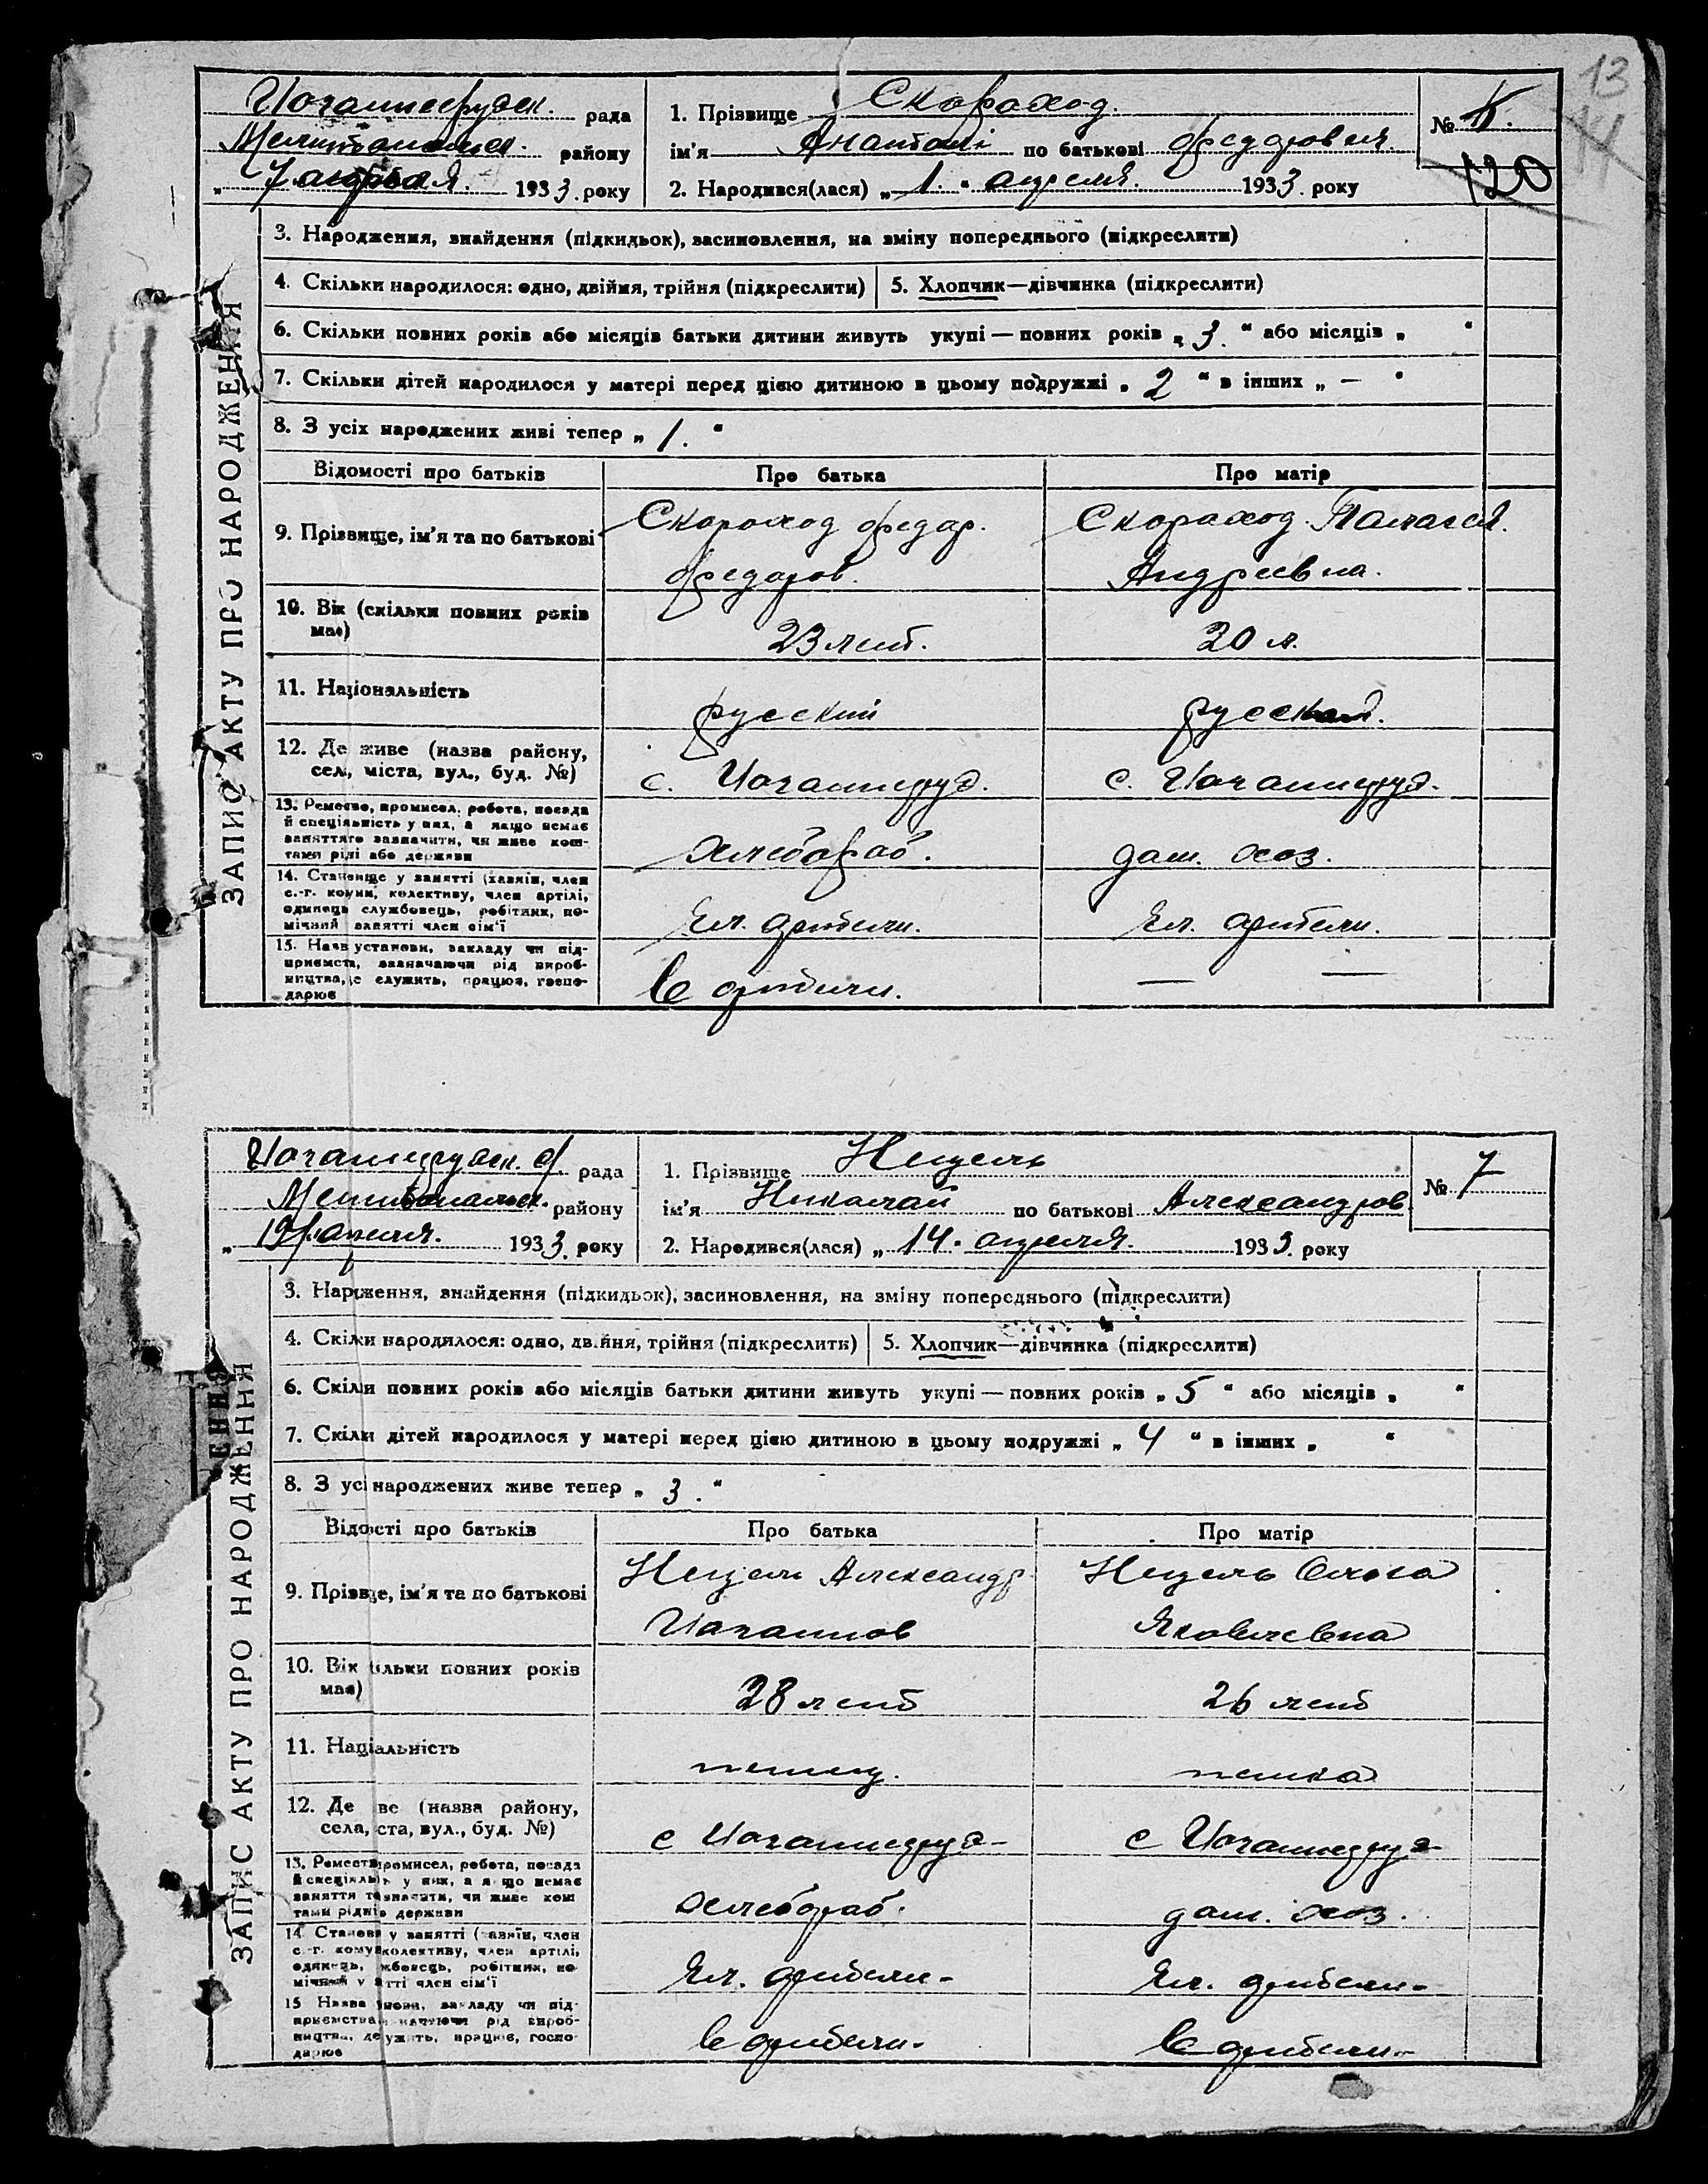 13
14
Иоганнесрудск. рада
Мелитопольск. району
„ 7 апреля. 1933. року
1. Прізвище Скораход.
ім'я Анатолі по батькові Федоровия.
2. Народився(лася) „ 1. “ апреля. 1933. року
№
120
ЗАПИС АКТУ ПРО НАРОДЖЕННЯ
3. Народження, знайдення (підкидьок), засиновлення, на зміну попереднього (підкреслити)
4. Скільки народилося: одно, двійня, трійня (підкреслити) 5. Хлопчик—дівчинка (підкреслити)
6. Скільки повних років або місяців батьки дитини живуть укупі — повних років „ 3. “ або місяців „ “
7. Скільки дітей народилося у матері перед цією дитиною в цьому подружжі „ 2 “ в інших „ — “
8. З усіх народжених живі тепер „ 1. “
Відомості про батьків Про батька Про матір
9. Прізвище, ім'я та по батькові
Скороход Федор. Федоров.
Скораход Палагея. Андреевна.
10. Вік (скільки повних років має)
23 лет. 20 л.
11. Національність
русский русская.
12. Де живе (назва району, села, міста, вул., буд. №)
с. Иоганнесруд. с. Иоганнесруд.
13. Ремество, промисел, робота, посада
й спеціяльність у них, а якщо немає
заняття то зазначити, чи живе кош-
тами рідні або держави
хлебораб. дом. хоз.
14. Становище у занятті (хазяїн, член
с.-г. комуни, колективу, член артілі,
одинець службовець, робітник, по-
мічний занятті член сім'ї
Чл. артели. Чл. артели.
15. Назва установи, закладу чи під-
приємства, зазначаючи рід вироб-
ництва, де служить, працює, госпо-
дарює
В артели. — —
Иоганнесрудск. с/ рада
Мелитопольск. району
„ 19/ апреля. 1933. року
1. Прізвище Нецель
ім'я Николай по батькові Александров
2. Народився(лася) „ 14. апреля. 1933. року
№ 7
ЗАПИС АКТУ ПРО НАРОДЖЕННЯ
3. Нардження, знайдення (підкидьок), засиновлення, на зміну попереднього (підкреслити)
4. Скілки народилося: одно, двійня, трійня (підкреслити) 5. Хлопчик—дівчинка (підкреслити)
6. Скілки повних років або місяців батьки дитини живуть укупі — повних років „ 5 “ або місяців „ “
7. Скілки дітей народилося у матері перед цією дитиною в цьому подружжі „ 4 “ в інших „ “
8. З усі народжених живе тепер „ 3. “
Відості про батьків Про батька Про матір
9. Прізвще, ім'я та по батькові
Нецель Александр Иоганнов
Нецель Ольга Яковлевна
10. Вік ільки повних років має)
28 лет 26 лет
11. Націальність
немец. немка
12. Де ве (назва району, села, ста, вул., буд. №)
с Иоганнесруд- с Иоганнесруд-
13. Реместромисел, робота, посада
й спеціяльнь у них, а якщо немає
заняття тзначити, чи живе кош
тами рідні держави
хлебораб. дом. хоз.
14 Станови у занятті (хазяїн, член
с.-г. комуколективу, член артілі,
одинець, жбовець, робітник, по
мічний у ятті член сім'ї
Чл. артели- Чл. артели-
15 Назва нови, закладу чи під-
приємства начаючи рід вироб-
ництва, де ужить, працює, госпо-
дарює
В артели- В артели-